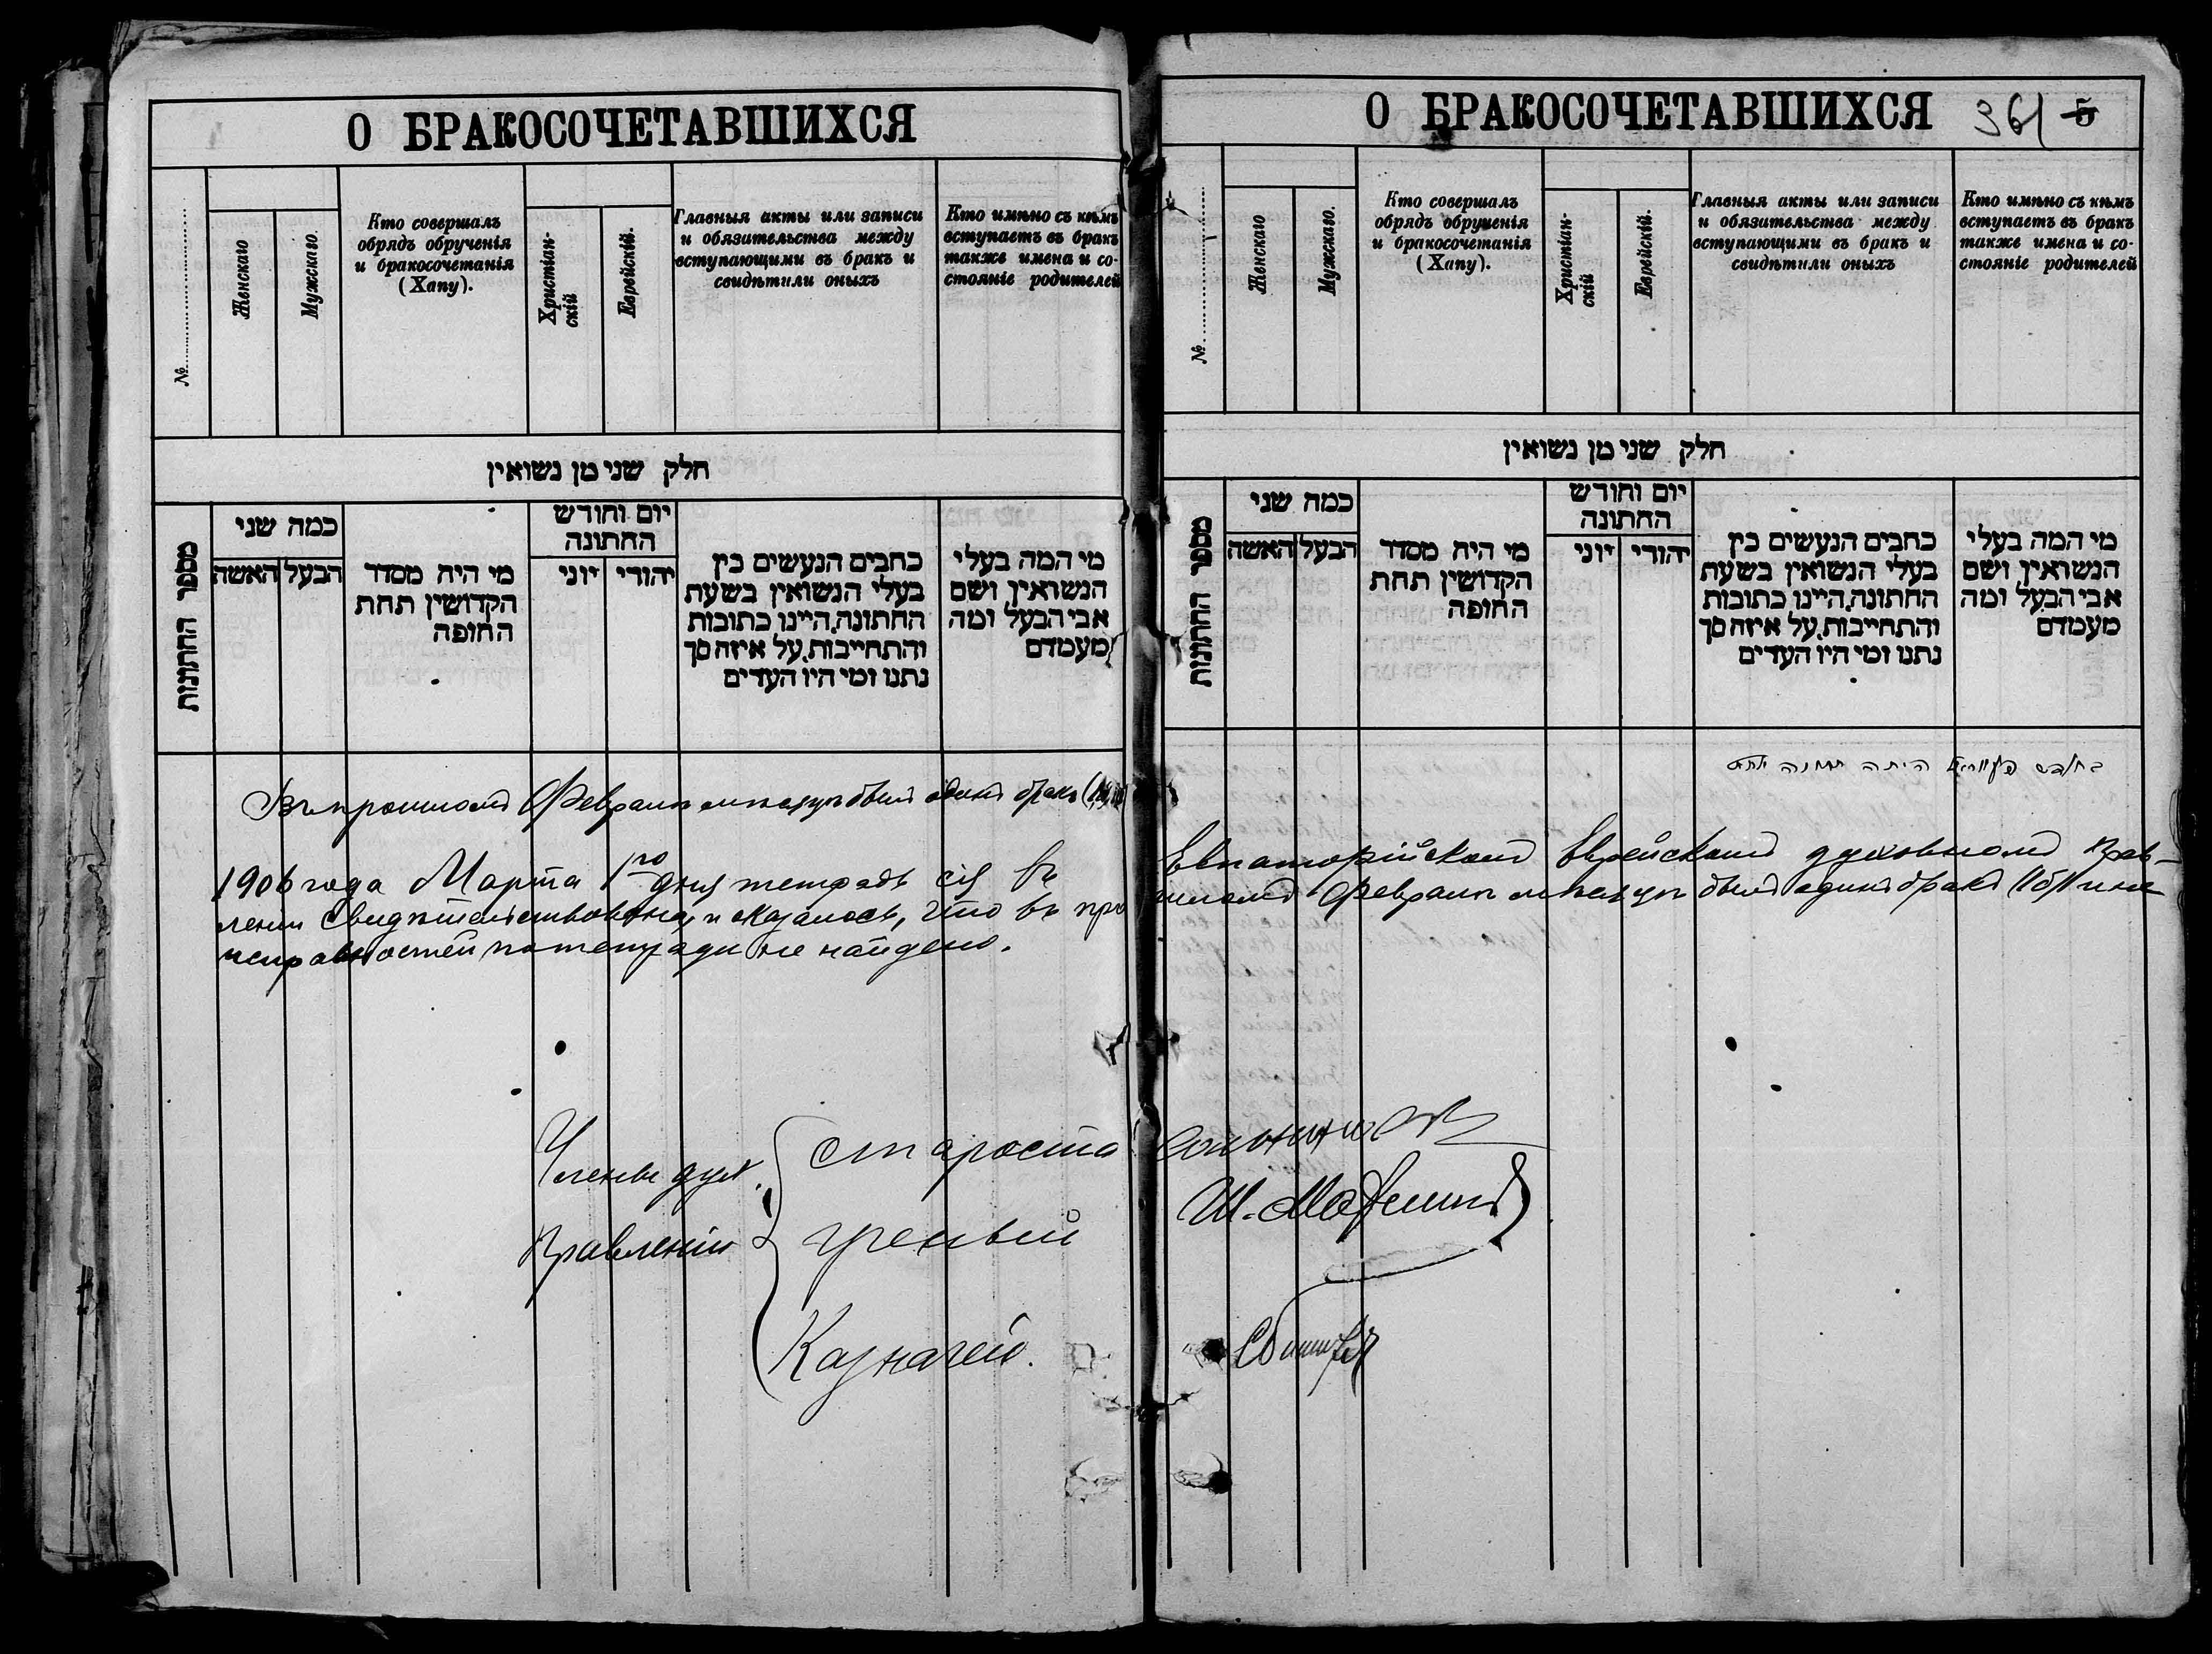 О БРАКОСОЧЕТАВШИХСЯ
№
Женскаго
Мужскаго.
Кто совершалъ
обрядъ обрученія
и бракосочетанія
(Хапу).
Христіан-
скій
Еврейскій.
Главныя акты или записи
и обязательства между
вступающими въ бракъ и
свидѣтили оныхъ
Кто имѣно съ кѣмъ
вступаетъ въ бракъ
также имена и со-
стояніе родителей
חלק שני מן נשואין
מספר החתונות
כמה שני
האשה
הבעל
מי היה מסדר
הקדושין תחת
החופה
יום וחודש
החתונה
יוני
יהודי
כתבים הנעשים בין
בעלי הנשואין בשעת
החתונה, היינו כתובות
והתחייבות, על איזה סך
נתנו ומי היו העדים
מי המה בעלי
הנשואין, ושם
אבי הבעל ומה
מעמדם
Въ прошломъ Февралѣ мѣсяцѣ былъ одинъ бракъ
1906 года Марта 1го дня тетрадь сія въ
леніи свидѣтельствована, и оказалось, что въ про
исправностей по тетради не найдено.
Члены дух.
Правленія
Староста
Ученый
Казначей.
О БРАКОСОЧЕТАВШИХСЯ
361 5
№
Женскаго
Мужскаго.
Кто совершалъ
обрядъ обрученія
и бракосочетанія
(Хапу).
Христіан-
скій
Еврейскій.
Главныя акты или записи
и обязательства между
вступающими въ бракъ и
свидѣтили оныхъ
Кто имѣно съ кѣмъ
вступаетъ въ бракъ
также имена и со-
стояніе родителей
חלק שני מן נשואין
מספר החתונות
כמה שני
האשה
הבעל
מי היה מסדר
הקדושין תחת
החופה
יום וחודש
החתונה
יוני
יהודי
כתבים הנעשים בין
בעלי הנשואין בשעת
החתונה, היינו כתובות
והתחייבות, על איזה סך
נתנו ומי היו העדים
מי המה בעלי
הנשואין, ושם
אבי הבעל ומה
מעמדם
בחדש היתה חתונה אחת
Евпаторійскомъ Еврейскомъ духовномъ Прав-
шломъ Февралѣ мѣсяцѣ былъ одинъ бракъ (1 б) и не
Ш.